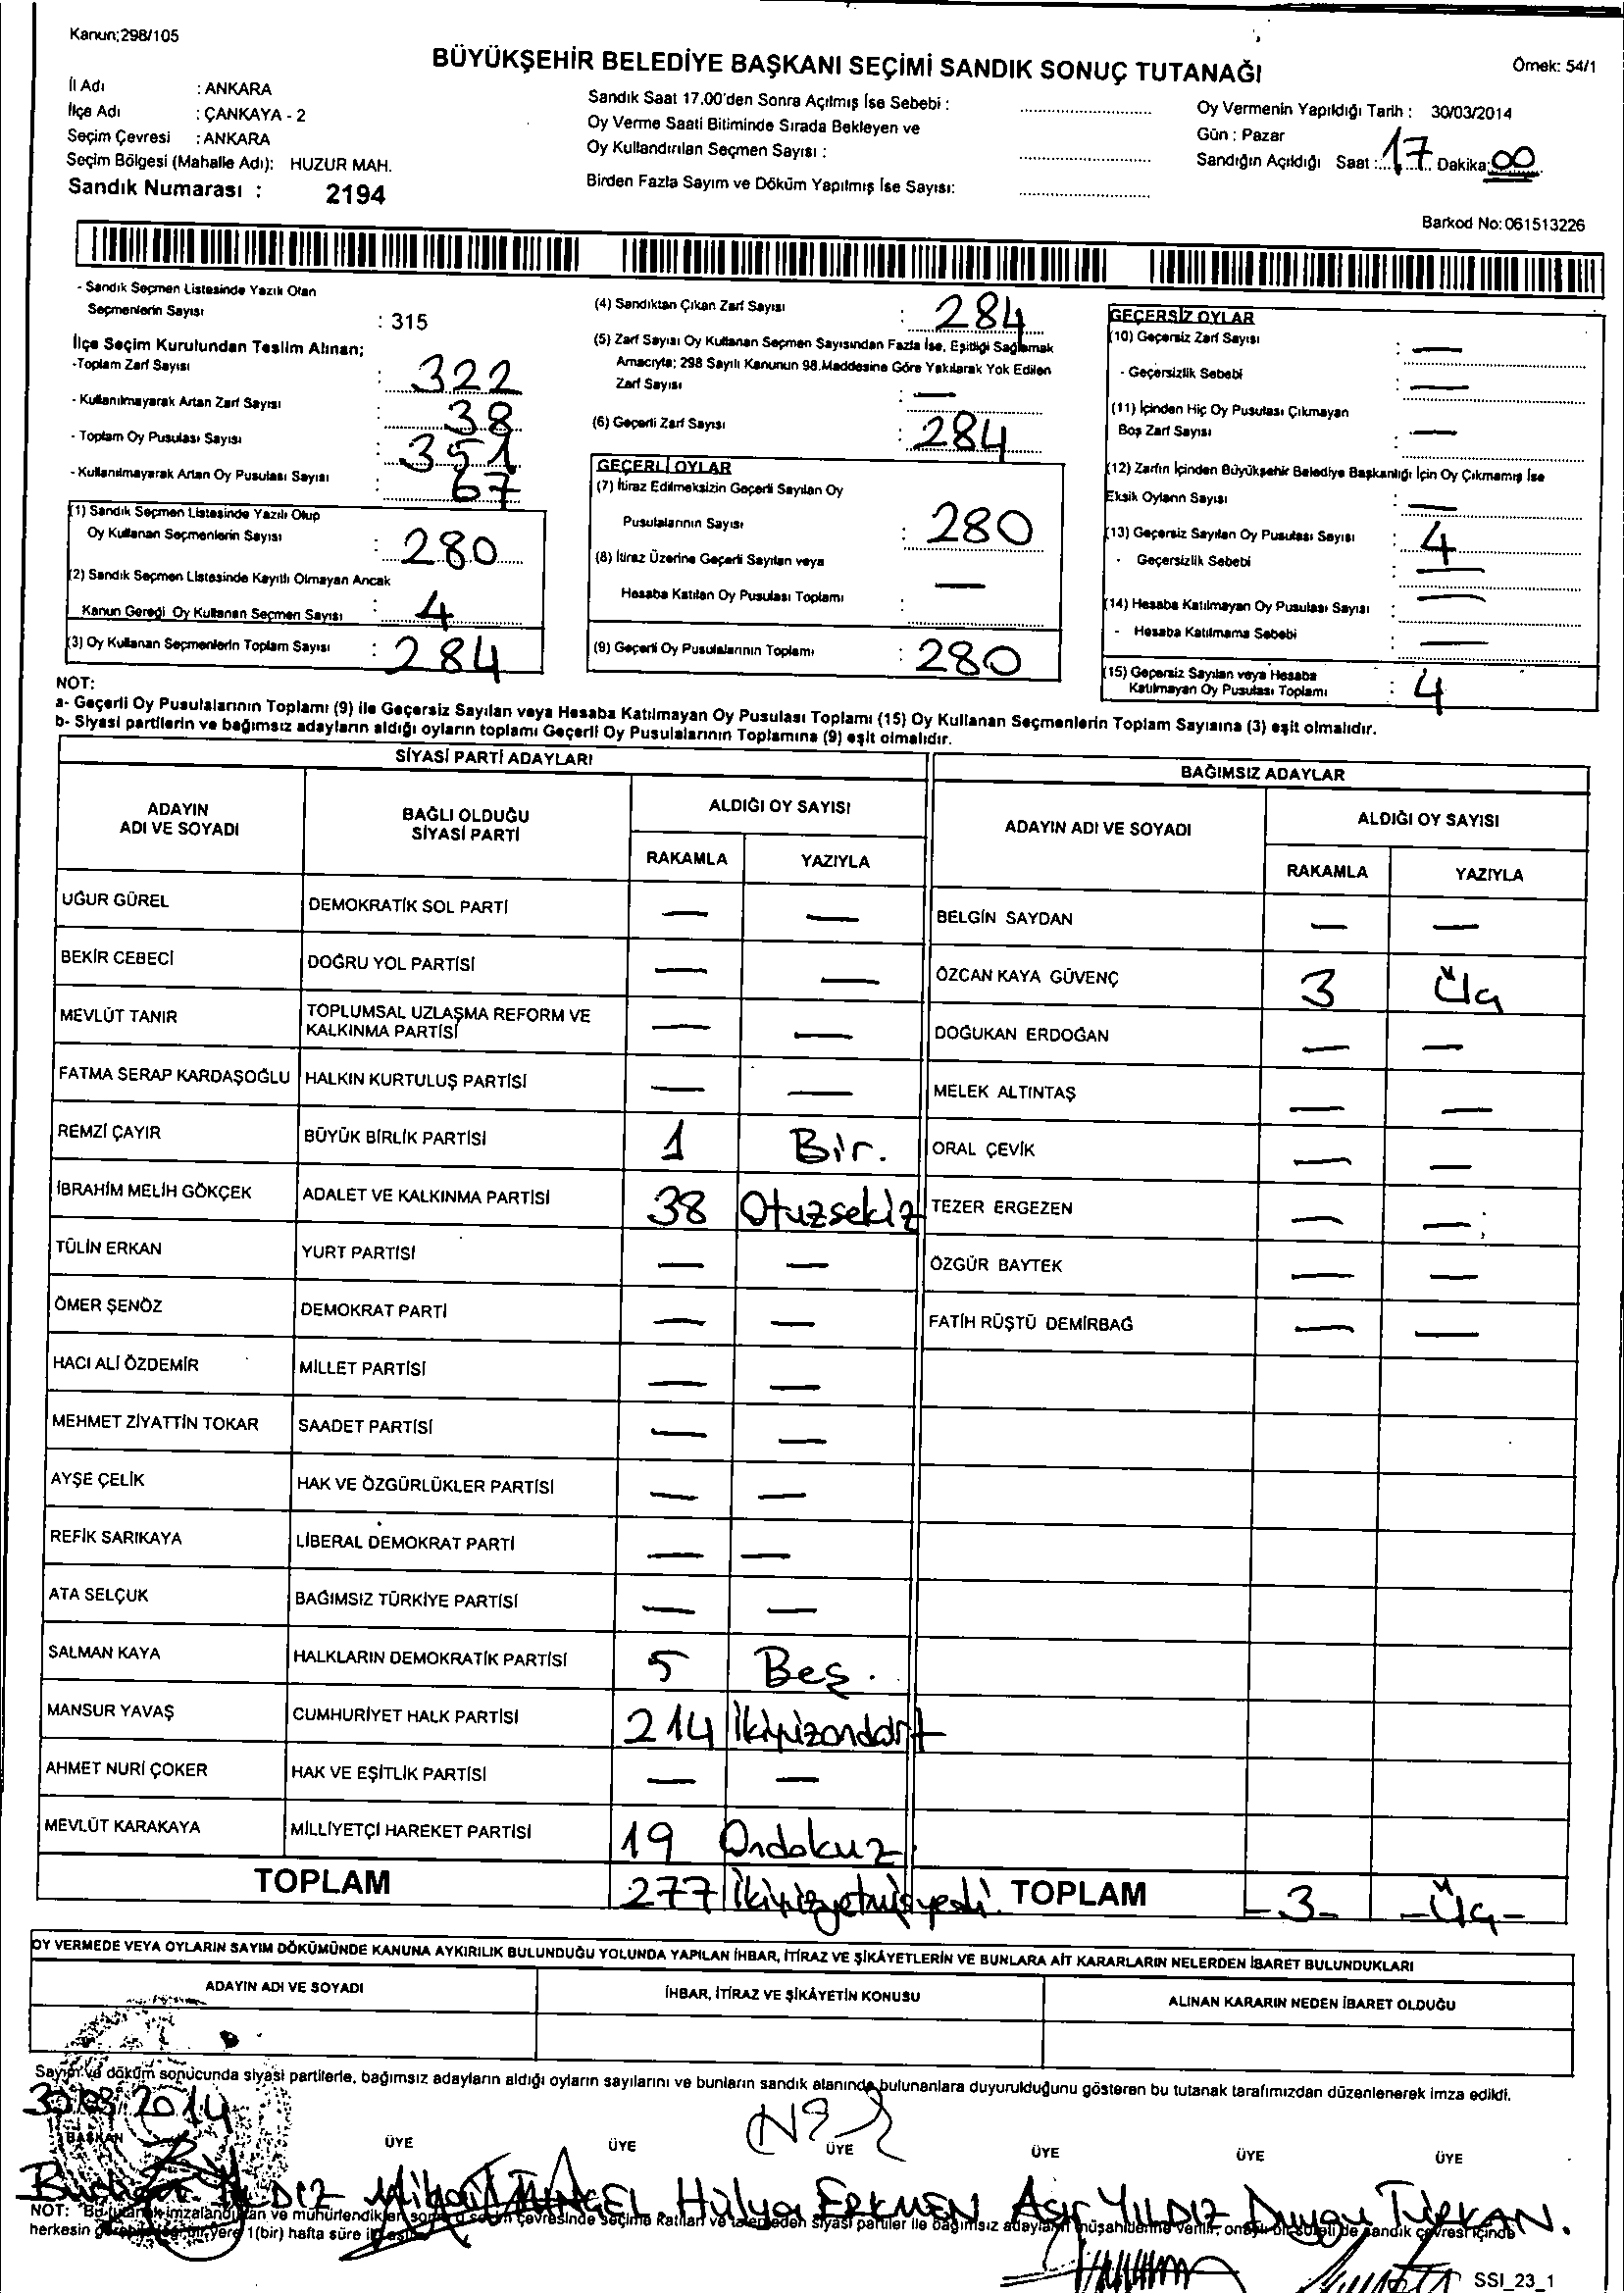 Kanun;298/105
BÜYÜKŞEHİR BELEDİYE BAŞKANI SEÇİMİ SANDIK SONUÇ TUTANAĞI
Örnek: 54/1
İl Adı : ANKARA
İlçe Adı : ÇANKAYA - 2
Seçim Çevresi : ANKARA
Seçim Bölgesi (Mahalle Adı): HUZUR MAH.
Sandık Numarası : 2194
Sandık Saat 17.00'den Sonra Açılmış İse Sebebi :
Oy Verme Saati Bitiminde Sırada Bekleyen ve
Oy Kullandırılan Seçmen Sayısı :
Birden Fazla Sayım ve Döküm Yapılmış İse Sayısı:
Oy Vermenin Yapıldığı Tarih : 30/03/2014
Gün : Pazar
Sandığın Açıldığı Saat : 17 Dakika: 00
Barkod No: 061513226
- Sandık Seçmen Listesinde Yazılı Olan
Seçmenlerin Sayısı : 315
İlçe Seçim Kurulundan Teslim Alınan;
-Toplam Zarf Sayısı : 322
- Kullanılmayarak Artan Zarf Sayısı : 38
- Toplam Oy Pusulası Sayısı : 351
- Kullanılmayarak Artan Oy Pusulası Sayısı : 67
(1) Sandık Seçmen Listesinde Yazılı Olup
Oy Kullanan Seçmenlerin Sayısı : 280
(2) Sandık Seçmen Listesinde Kayıtlı Olmayan Ancak
Kanun Gereği Oy Kullanan Seçmen Sayısı : 4
(3) Oy Kullanan Seçmenlerin Toplam Sayısı : 284
(4) Sandıktan Çıkan Zarf Sayısı : 284
(5) Zarf Sayısı Oy Kullanan Seçmen Sayısından Fazla İse, Eşitliği Sağlamak
Amacıyla; 298 Sayılı Kanunun 98.Maddesine Göre Yakılarak Yok Edilen
Zarf Sayısı : —
(6) Geçerli Zarf Sayısı : 284
GEÇERLİ OYLAR
(7) İtiraz Edilmeksizin Geçerli Sayılan Oy
Pusulalarının Sayısı : 280
(8) İtiraz Üzerine Geçerli Sayılan veya
Hesaba Katılan Oy Pusulası Toplamı : —
(9) Geçerli Oy Pusulalarının Toplamı : 280
GEÇERSİZ OYLAR
(10) Geçersiz Zarf Sayısı : —
- Geçersizlik Sebebi : —
(11) İçinden Hiç Oy Pusulası Çıkmayan
Boş Zarf Sayısı : —
(12) Zarfın İçinden Büyükşehir Belediye Başkanlığı İçin Oy Çıkmamış İse
Eksik Oyların Sayısı : —
(13) Geçersiz Sayılan Oy Pusulası Sayısı : 4
- Geçersizlik Sebebi : —
(14) Hesaba Katılmayan Oy Pusulası Sayısı : —
- Hesaba Katılmama Sebebi : —
(15) Geçersiz Sayılan veya Hesaba
Katılmayan Oy Pusulası Toplamı : 4
NOT:
a- Geçerli Oy Pusulalarının Toplamı (9) ile Geçersiz Sayılan veya Hesaba Katılmayan Oy Pusulası Toplamı (15) Oy Kullanan Seçmenlerin Toplam Sayısına (3) eşit olmalıdır.
b- Siyasi partilerin ve bağımsız adayların aldığı oyların toplamı Geçerli Oy Pusulalarının Toplamına (9) eşit olmalıdır.
SİYASİ PARTİ ADAYLARI
ADAYIN ADI VE SOYADI
BAĞLI OLDUĞU SİYASİ PARTİ
ALDIĞI OY SAYISI
RAKAMLA YAZIYLA
UĞUR GÜREL DEMOKRATİK SOL PARTİ — —
BEKİR CEBECİ DOĞRU YOL PARTİSİ — —
MEVLÜT TANIR TOPLUMSAL UZLAŞMA REFORM VE KALKINMA PARTİSİ — —
FATMA SERAP KARDAŞOĞLU HALKIN KURTULUŞ PARTİSİ — —
REMZİ ÇAYIR BÜYÜK BİRLİK PARTİSİ 1 Bir.
İBRAHİM MELİH GÖKÇEK ADALET VE KALKINMA PARTİSİ 38 Otuzsekiz
TÜLİN ERKAN YURT PARTİSİ — —
ÖMER ŞENÖZ DEMOKRAT PARTİ — —
HACI ALİ ÖZDEMİR MİLLET PARTİSİ — —
MEHMET ZİYATTİN TOKAR SAADET PARTİSİ — —
AYŞE ÇELİK HAK VE ÖZGÜRLÜKLER PARTİSİ — —
REFİK SARIKAYA LİBERAL DEMOKRAT PARTİ — —
ATA SELÇUK BAĞIMSIZ TÜRKİYE PARTİSİ — —
SALMAN KAYA HALKLARIN DEMOKRATİK PARTİSİ 5 Beş.
MANSUR YAVAŞ CUMHURİYET HALK PARTİSİ 214 İkiyüzondört
AHMET NURİ ÇOKER HAK VE EŞİTLİK PARTİSİ — —
MEVLÜT KARAKAYA MİLLİYETÇİ HAREKET PARTİSİ 19 Ondokuz
TOPLAM 277 İkiyüzyetmişyedi.
BAĞIMSIZ ADAYLAR
ADAYIN ADI VE SOYADI
ALDIĞI OY SAYISI
RAKAMLA YAZIYLA
BELGİN SAYDAN — —
ÖZCAN KAYA GÜVENÇ 3 Üç
DOĞUKAN ERDOĞAN — —
MELEK ALTINTAŞ — —
ORAL ÇEVİK — —
TEZER ERGEZEN — —
ÖZGÜR BAYTEK — —
FATİH RÜŞTÜ DEMİRBAĞ — —
TOPLAM -3- -Üç-
OY VERMEDE VEYA OYLARIN SAYIM DÖKÜMÜNDE KANUNA AYKIRILIK BULUNDUĞU YOLUNDA YAPILAN İHBAR, İTİRAZ VE ŞİKÂYETLERİN VE BUNLARA AİT KARARLARIN NELERDEN İBARET BULUNDUKLARI
ADAYIN ADI VE SOYADI
İHBAR, İTİRAZ VE ŞİKÂYETİN KONUSU
ALINAN KARARIN NEDEN İBARET OLDUĞU
Sayım ve döküm sonucunda siyasi partilerle, bağımsız adayların aldığı oyların sayılarını ve bunların sandık alanında bulunanlara duyurulduğunu gösteren bu tutanak tarafımızdan düzenlenerek imza edildi.
30/03/2014
BAŞKAN ÜYE ÜYE ÜYE ÜYE ÜYE ÜYE
YILDIZ Hülya ERKMEN YILDIZ Duygu TÜRKAN.
NOT: Bu tutanak imzalandıktan ve mühürlendikten sonra o seçim çevresinde seçime katılan ve talep eden siyasi partiler ile bağımsız adayların müşahidlerine verilir, onaylı bir sureti de sandık çevresi içinde
herkesin görebileceği bir yere 1(bir) hafta süre ile asılır.
SSI_23_1